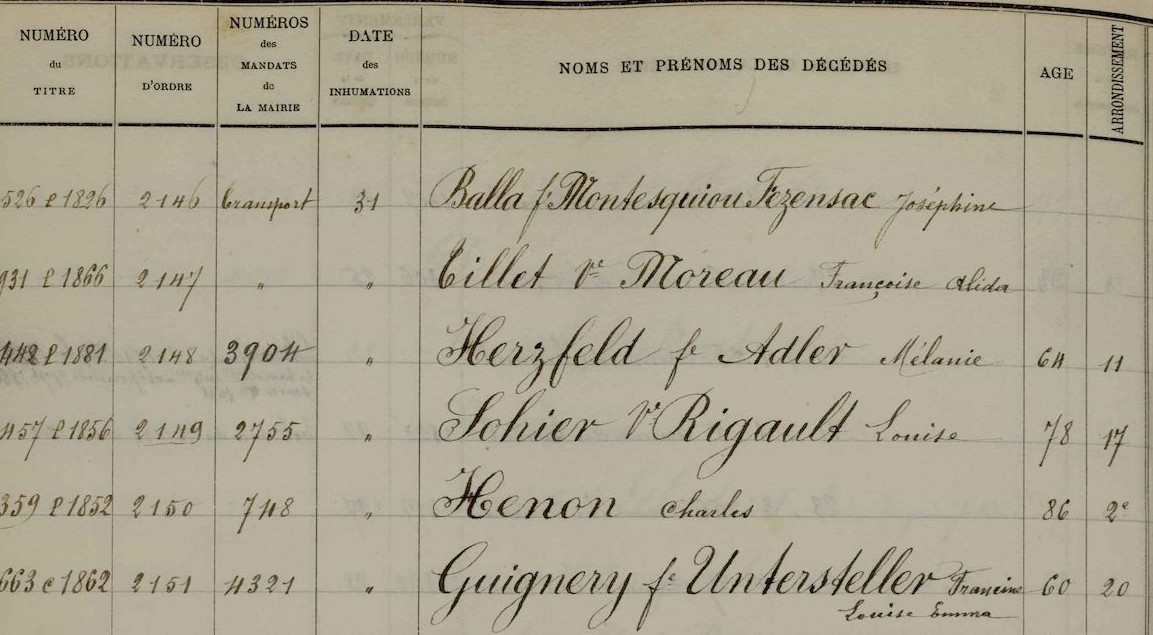 NUMÉRO du TITRE
NUMÉRO D'ORDRE
NUMÉROS des MANDATS de LA MAIRIE
DATE des INHUMATIONS
NOMS ET PRÉNOMS DES DÉCÉDÉS
AGE
ARRONDISSEMENT
526 P 1826 2146 transport 31 Balla fe Montesquiou Fezensac Joséphine
931 P 1866 2147 " " Tillet Ve Moreau Françoise Alida
442 P 1881 2148 3904 " Herzfeld fe Adler Mélanie 64 11
457 P 1856 2149 2755 " Sohier Ve Rigault Louise 78 17
359 P 1852 2150 748 " Henon Charles 86 2e
663 c 1862 2151 4321 " Guignery fe Untersteller Francine 60 20
Louise Emma